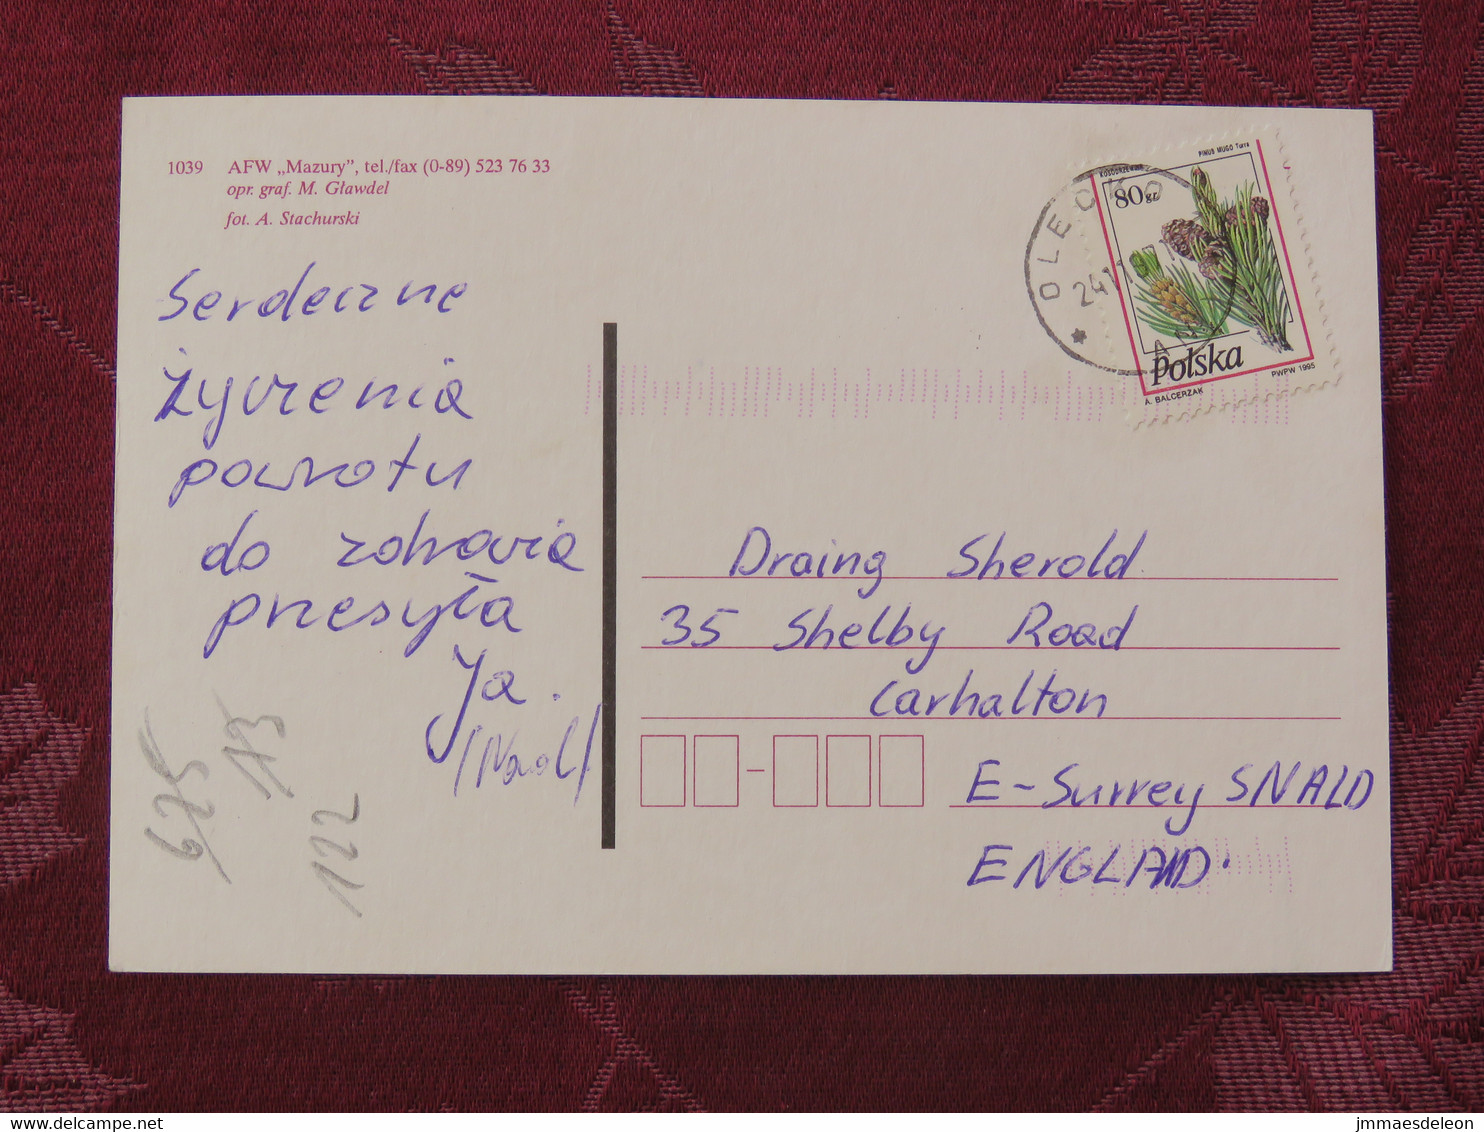 1039 AFW „Mazury”, tel./fax (0-89) 523 76 33
opr. graf. M. Gławdel
fot. A. Stachurski
Serdeczne
życzenia
powrotu
do zdrowia
przesyła
Ja.
675
113
122
OLECKO
24
PINUS MUGO Turra
80 gr
Polska
A. BALCERZAK
PWPW 1995
Draing Sherold
35 Shelby Road
Carhalton
E-Surrey SNALD
ENGLAND.
jmmaesdeleon